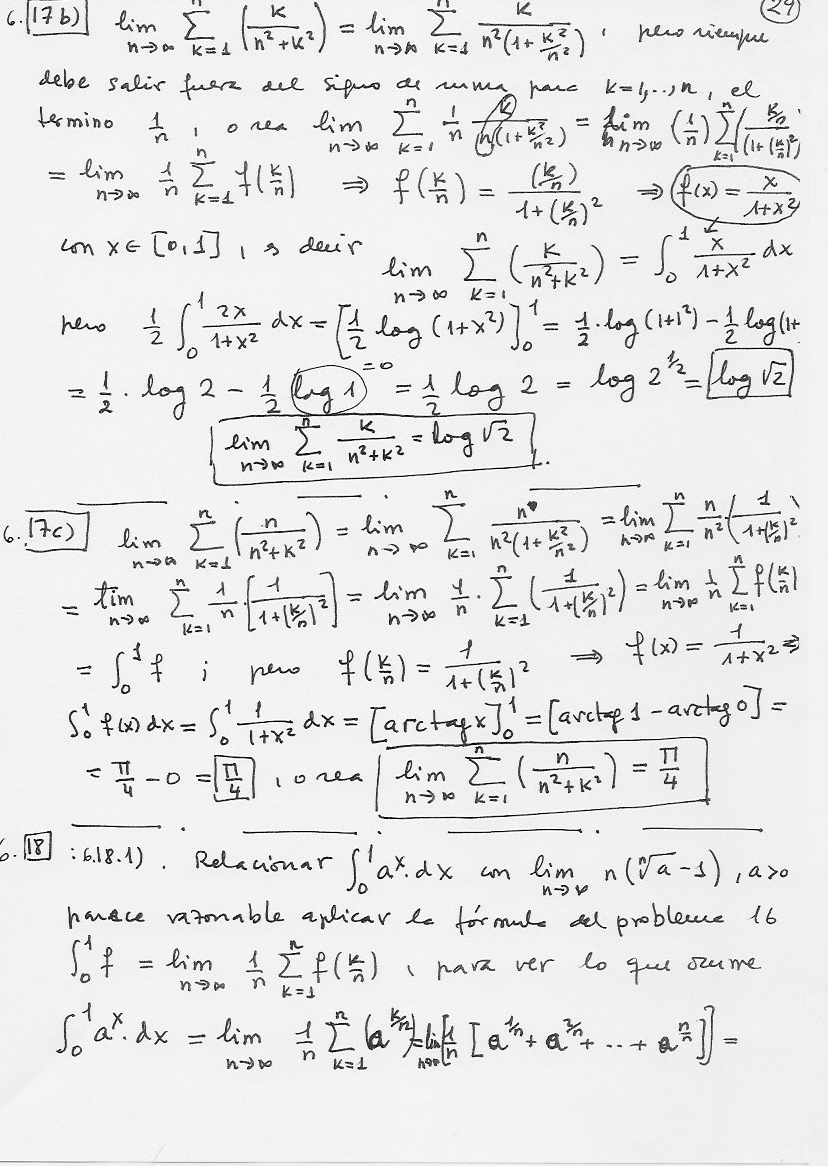 (29)
6. 17 b) lim_{n→∞} Σ_{k=1}^{n} (k/(n²+k²)) = lim_{n→∞} Σ_{k=1}^{n} k/(n²(1+k²/n²)) , pero siempre
debe salir fuera del signo de suma para k=1,..,n, el
termino 1/n , o sea lim_{n→∞} Σ_{k=1}^{n} 1/n · k/(n(1+k²/n²)) = lim_{n→∞} (1/n) Σ_{k=1}^{n} ((k/n)/(1+(k/n)²))
= lim_{n→∞} 1/n Σ_{k=1}^{n} f(k/n) ⇒ f(k/n) = (k/n)/(1+(k/n)²) ⇒ f(x) = x/(1+x²)
con x∈[0,1] , es decir lim_{n→∞} Σ_{k=1}^{n} (k/(n²+k²)) = ∫_0^1 x/(1+x²) dx
pero 1/2 ∫_0^1 2x/(1+x²) dx = [1/2 log (1+x²)]_0^1 = 1/2·log(1+1²) − 1/2 log(1+
= 1/2 · log 2 − 1/2 log 1 =0 = 1/2 log 2 = log 2^{1/2} = log √2
lim_{n→∞} Σ_{k=1}^{n} k/(n²+k²) = log √2 .
6. 17c) lim_{n→∞} Σ_{k=1}^{n} (n/(n²+k²)) = lim_{n→∞} Σ_{k=1}^{n} n/(n²(1+k²/n²)) = lim_{n→∞} Σ_{k=1}^{n} n/n² · (1/(1+(k/n)²
= lim_{n→∞} Σ_{k=1}^{n} 1/n · [1/(1+(k/n)²)] = lim_{n→∞} 1/n · Σ_{k=1}^{n} (1/(1+(k/n)²)) = lim_{n→∞} 1/n Σ_{k=1}^{n} f(k/n)
= ∫_0^1 f ; pero f(k/n) = 1/(1+(k/n)²) ⇒ f(x) = 1/(1+x²) ⇒
∫_0^1 f(x) dx = ∫_0^1 1/(1+x²) dx = [arctag x]_0^1 = [arctag 1 − arctag 0] =
= π/4 − 0 = π/4 , o sea lim_{n→∞} Σ_{k=1}^{n} (n/(n²+k²)) = π/4
6. 18 : 6.18.1) . Relacionar ∫_0^1 a^x · dx con lim_{n→∞} n(ⁿ√a − 1) , a>0
parece razonable aplicar la fórmula del problema 16
∫_0^1 f = lim_{n→∞} 1/n Σ_{k=1}^{n} f(k/n) , para ver lo que ocurre
∫_0^1 a^x · dx = lim_{n→∞} 1/n Σ_{k=1}^{n} (a^{k/n}) = lim_{n→∞} [1/n [a^{1/n} + a^{2/n} + ... + a^{n/n}]] =